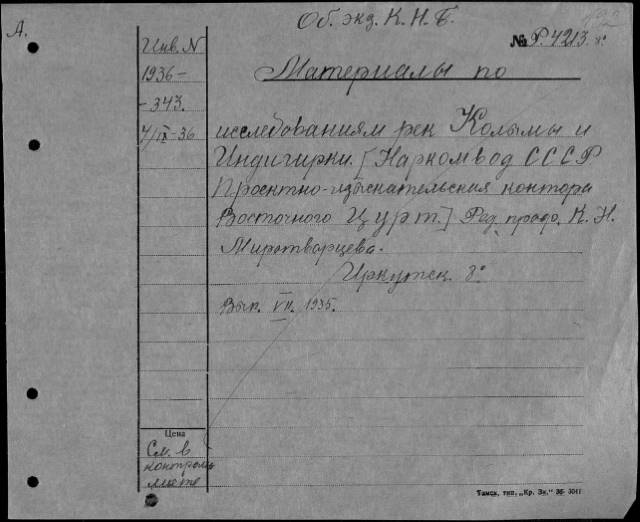 А.
Об. экз. К. Н. Б.
№ Р. 4213. 8°
Инв. N
1936-
-343.
4/IX-36
Материалы по
исследованиям рек Колымы и
Индигирки. [Наркомвод СССР.
Проектно-изыскательская контора
Восточного Цурт.] Ред. проф. К. Н.
Миротворцева.
Иркутск 8°
Вып. VII. 1935.
Цена
См. в
контроль
листе
Томск, тип. „Кр. Зн.“ 36